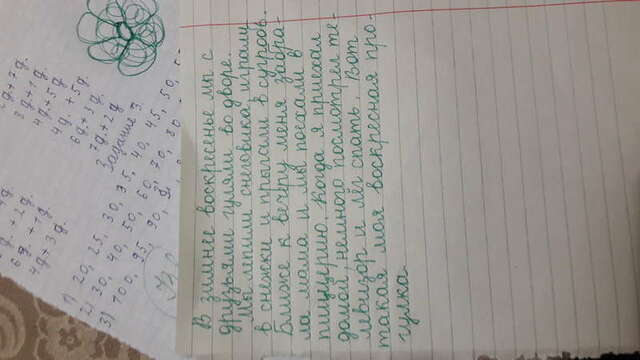 2g. + 7g.
. + 2g. 3g + 1g.
6g. + 7g. 4g + 5g
4g + 3g. 4g. + 5g.
6g + 3g.
7g. + 2g
Задание 3.
1) 20, 25, 30, 35, 40, 45, 50,
2) 30, 40, 50, 60, 70, 80
3) 100, 95, 90,
В зимнее воскресенье мы с
друзьями гуляли во дворе.
Мы лепили снеговика, играли
в снежки и прыгали в сугроб.
Ближе к вечеру меня забра-
ла мама и мы поехали в
пиццерию. Когда я приехал
домой, немного посмотрел те-
левизор и лёг спать. Вот
такая моя воскресная про-
гулка.